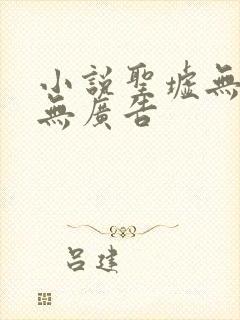 小說聖墟無
無廣告
呂建